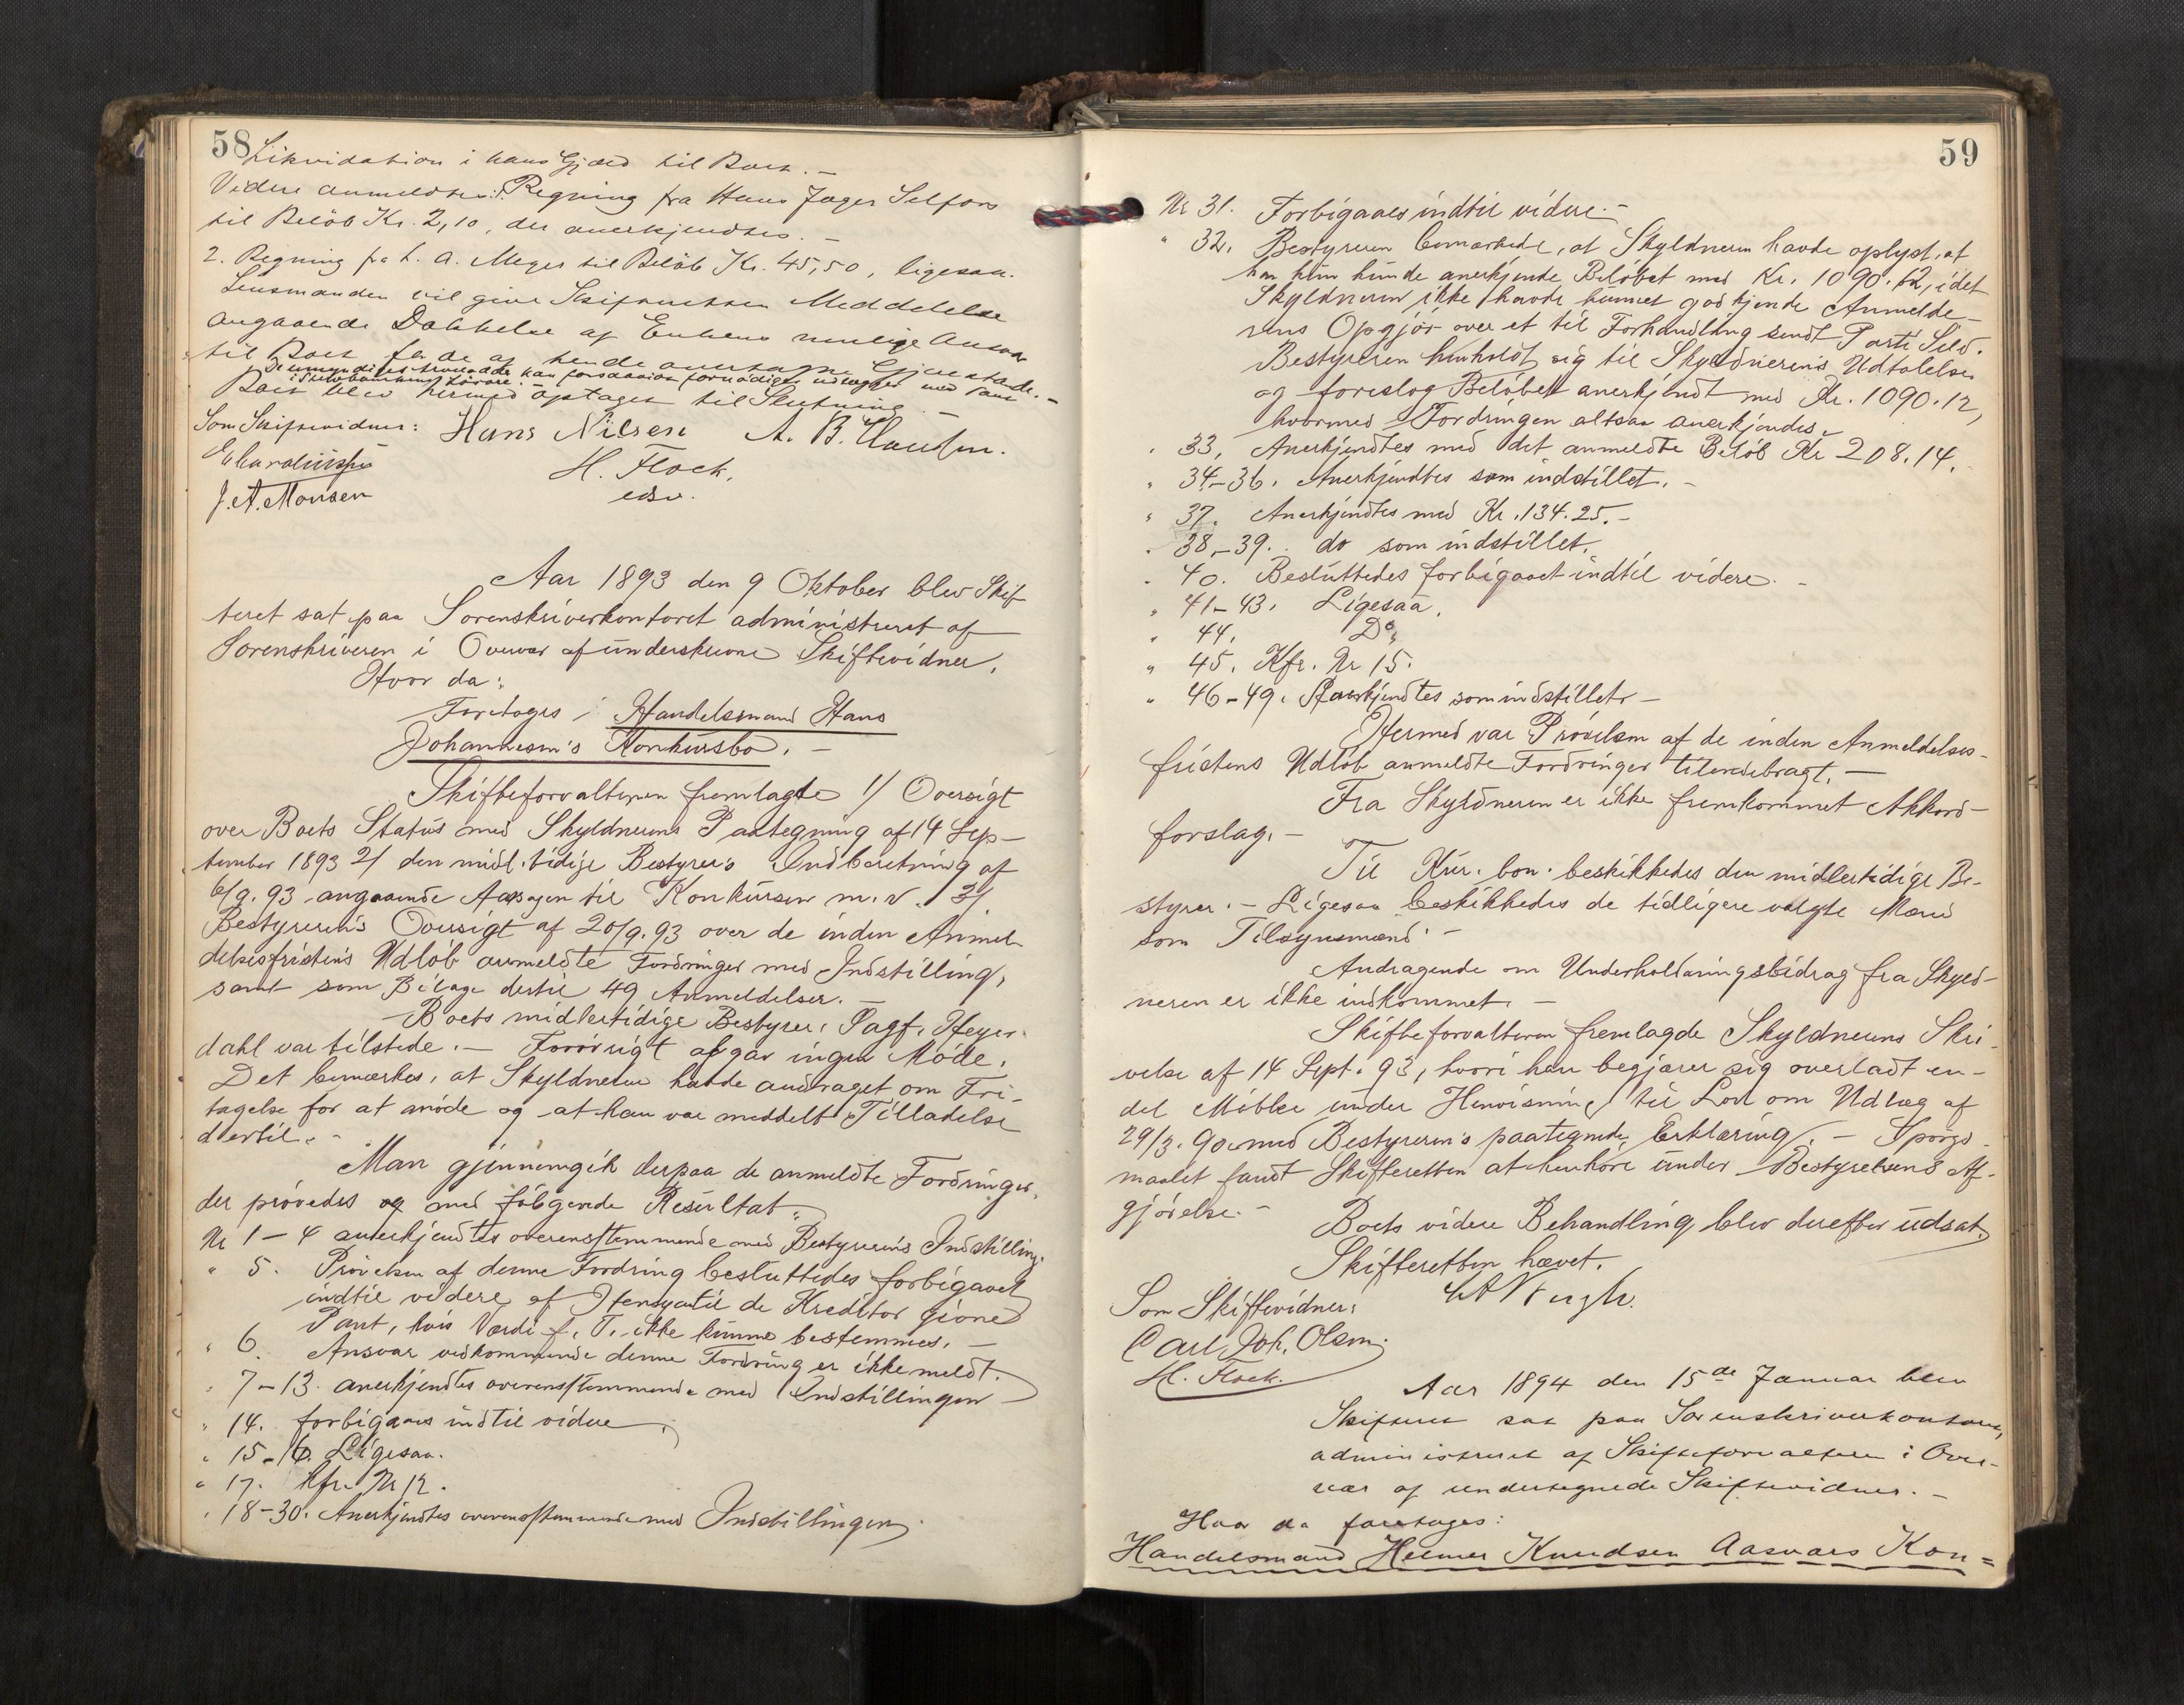 58
Likvidation i hans Gjæld til Boet. –
Videre anmeldtes: 1. Regning fra Hans Jager Selfors
til Beløb Kr. 2,10, der anerkjendtes. –
2. Regning fra L. A. Meyer til Beløb Kr. 45,50, ligesaa.
Lensmanden vil give Skifteretten Meddelelse
angaaende Dækkelse af Enkens mulige Ansvar
til Boet for de af hende overtagne Gjenstande. –
Boet blev hermed optaget til Slutning. –
Som Skiftevidner: Hans Nilsen A. B. Clausen.
H. Flock,
J. A. Monsen edsv.
Aar 1893 den 9 Oktober blev Skif
teret sat paa Sorenskriverkontoret administreret af
Sorenskriveren i Overvær af underskrevne Skiftevidner,
Hvor da:
Foretoges i Handelsmand Hans
Johannesen's Konkursbo. –
Skifteforvalteren fremlagde 1/ Oversigt
over Boets Status med Skyldnerens Paategning af 14 Sep-
tember 1893 2/ den midl.tidige Bestyrer's Indberetning af
6/9. 93 angaaende Aarsagen til Konkursen m. v. 3/
Bestyrerens Oversigt af 20/9. 93 over de inden Anmel
delsesfristens Udløb anmeldte Fordringer med Indstilling,
samt som Bilage dertil 49 Anmeldelser. –
Boets midlertidige Bestyrer, Sagf. Heyer-
dahl var tilstede. – Forøvrigt afgav ingen Møde.
Det bemærkes, at Skyldneren havde andraget om Fri-
tagelse for at møde og at han var meddelt Tilladelse
dertil. –
Man gjennemgik derpaa de anmeldte Fordringer,
der prøvedes og med følgende Resultat:
Nr 1 – 4 anerkjendtes overensstemmende med Bestyrerens Indstilling.
" 5. Prøvelsen af denne Fordring besluttedes forbigaaet
indtil videre af Hensyn til de Kreditor givne
Pant, hvis Værdi f. T. ikke kunne bestemmes. –
" 6. Ansvar vedkommende denne Fordring er ikke meldt.
" 7 – 13. anerkjendtes overensstemmende med Indstillingen
" 14. forbigaaes indtil videre.
" 15 – 16. Ligesaa.
" 17. kfr. Nr 12.
" 18 – 30. Anerkjendtes overensstemmende med Indstillingen.
59
Nr 31. Forbigaaes indtil videre. –
" 32. Bestyreren bemærkede, at Skyldneren havde oplyst, at
han kun kunde anerkjende Beløbet med Kr. 1090.12, idet
Skyldneren ikke havde kunnet godkjende Anmelde-
rens Opgjør over et til Forhandling sendt Parti Sild.
Bestyreren henholdt sig til Skyldnerens Udtalelse
og foreslog Beløbet anerkjendt med Kr. 1090.12,
hvormed Fordringen altsaa anerkjendes.
" 33, Anerkjendtes med det anmeldte Beløb Kr 208.14.
" 34 – 36. Anerkjendtes som indstillet. –
" 37. Anerkjendtes med Kr. 134.25. –
" 38 – 39. do som indstillet.
" 40. Besluttedes forbigaaet indtil videre. –
" 41 – 43. Ligesaa.
" 44. Do.
" 45. Kfr. Nr 15.
" 46 – 49. Anerkjendtes som indstillet –
Hermed var Prøvelsen af de inden Anmeldelses-
fristens Udløb anmeldte Fordringer tilendebragt. –
Fra Skyldneren er ikke fremkommet Akkord-
forslag. –
Til Kur. bon. beskikkedes den midlertidige Be-
styrer. – Ligesaa beskikkedes de tidligere valgte Mænd
som Tilsynsmænd. –
Andragende om Underholdningsbidrag fra Skyld-
neren er ikke indkommet. –
Skifteforvalteren fremlagde Skyldnerens Skri-
velse af 14 Sept. 93, hvori han begjærer sig overladt en-
del Møbler under Henvisning til Lov om Udlæg af
29/3. 90 med Bestyreren's paategnede Erklæring. – Spørgs-
maalet fandt Skifteretten at henhøre under Bestyrelsens Af-
gjørelse. –
Boets videre Behandling blev derefter udsat.
Skifteretten hævet.
Som Skiftevidner:
Carl Joh. Olsen.
H. Flock.
Aar 1894 den 15de Januar blev
Skifteret sat paa Sorenskriverkontoret,
administreret af Skifteforvalteren i Over-
vær af undertegnede Skiftevidner. –
Hvor da foretoges:
Handelsmand Helmer Knudsen Aasværs Kon=